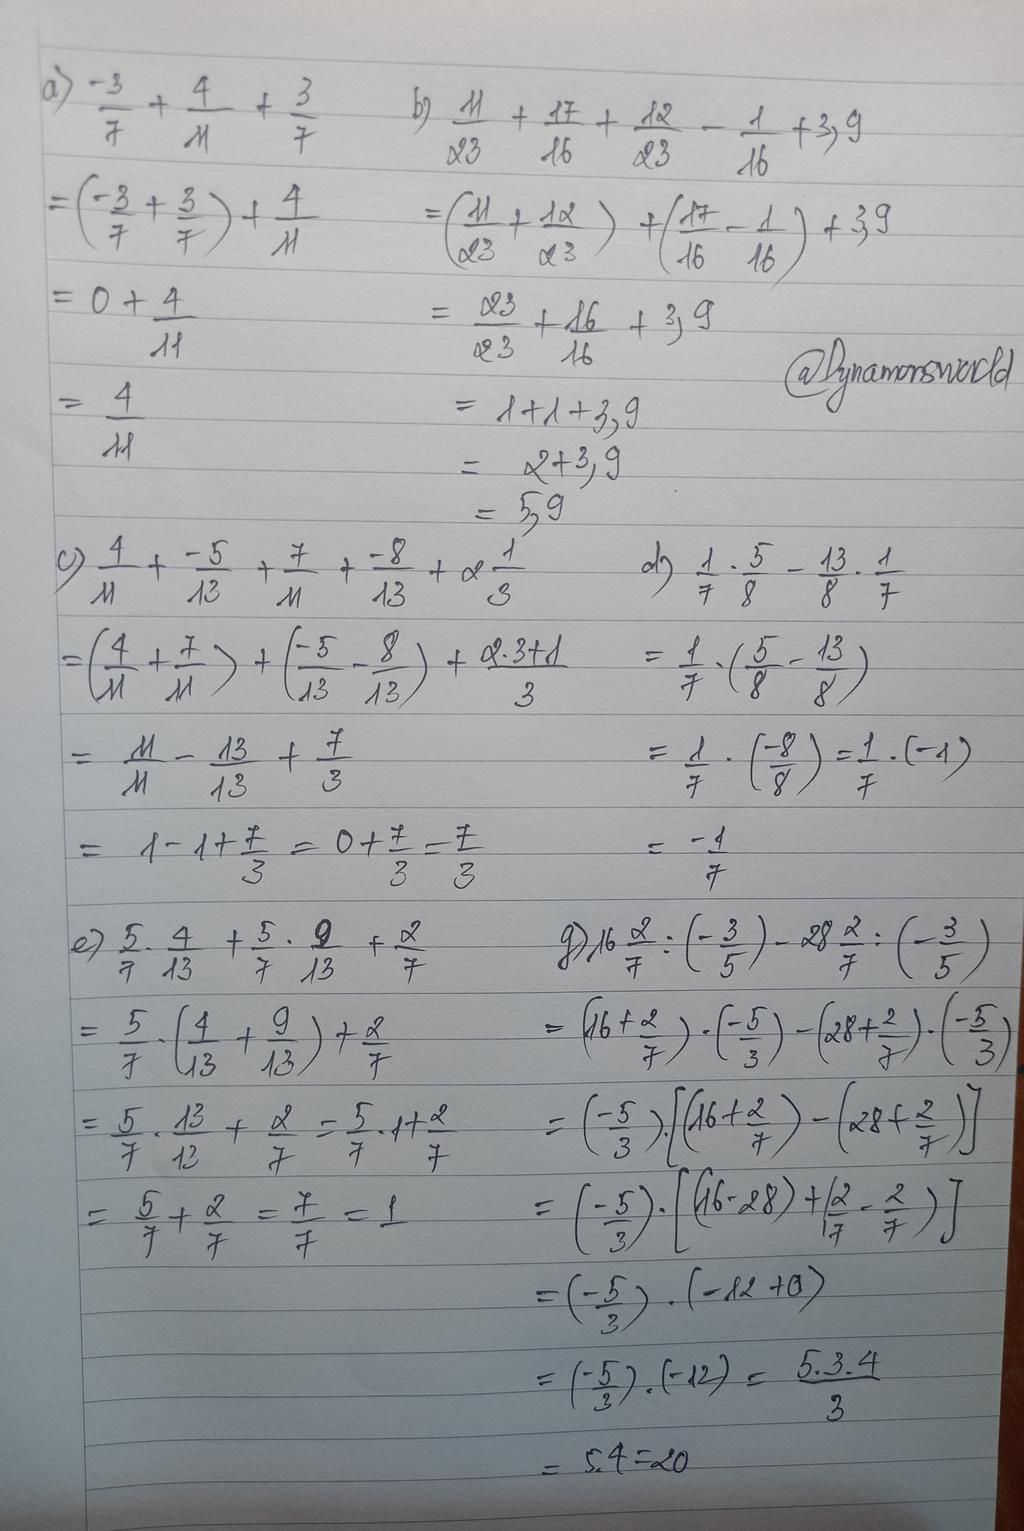 a) -3/7 + 4/11 + 3/7
= (-3/7 + 3/7) + 4/11
= 0 + 4/11
= 4/11
b) 11/23 + 17/16 + 12/23 - 1/16 + 3,9
= (11/23 + 12/23) + (17/16 - 1/16) + 3,9
= 23/23 + 16/16 + 3,9
= 1+1+3,9
= 2+3,9
= 5,9
@Dynamonsworld
c) 4/11 + -5/13 + 7/11 + -8/13 + 2 1/3
= (4/11 + 7/11) + (-5/13 - 8/13) + 2.3+1/3
= 11/11 - 13/13 + 7/3
= 1-1+7/3 = 0+7/3 = 7/3
d) 1/7 . 5/8 - 13/8 . 1/7
= 1/7 . (5/8 - 13/8)
= 1/7 . (-8/8) = 1/7 . (-1)
= -1/7
e) 5/7 . 4/13 + 5/7 . 9/13 + 2/7
= 5/7 . (4/13 + 9/13) + 2/7
= 5/7 . 13/13 + 2/7 = 5/7 . 1 + 2/7
= 5/7 + 2/7 = 7/7 = 1
g) 16 2/7 : (-3/5) - 28 2/7 : (-3/5)
= (16 + 2/7) . (-5/3) - (28 + 2/7) . (-5/3)
= (-5/3) . [(16 + 2/7) - (28 + 2/7)]
= (-5/3) . [(16-28) + (2/7 - 2/7)]
= (-5/3) . (-12+0)
= (-5/3) . (-12) = 5.3.4/3
= 5.4=20